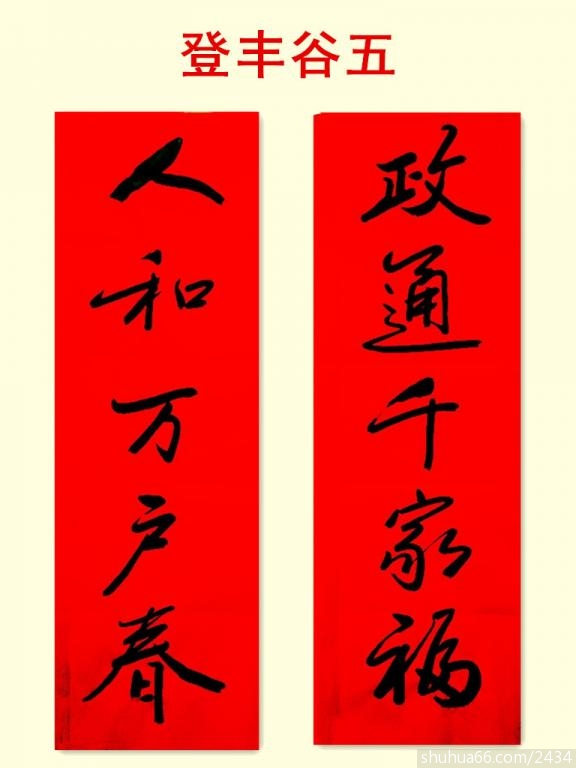 登丰谷五
政通千家福
人和万户春
shuhua66.com/2434